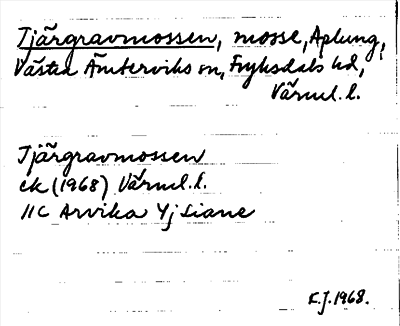 Tjärgravmossen, mosse, Aplung,
Västra Ämterviks sn, Fryksdals hd,
Värml. l.
Tjärgravmossen
ek (1968) Värml. l.
11C Arvika 4j Liane
K.J. 1968.